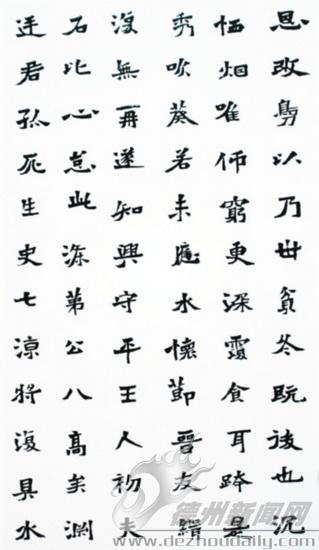 恩改以乃世貧苓既後也沉
恓烟唯師窮更深靈食耳跡是
秀吹葵若未應水懷節晉友
復無再遂知興守平王人初夫
石比心怠此深第公八高矣淵
君孤死生史七涼將復具水
德州新闻网
www.dezhoudaily.com